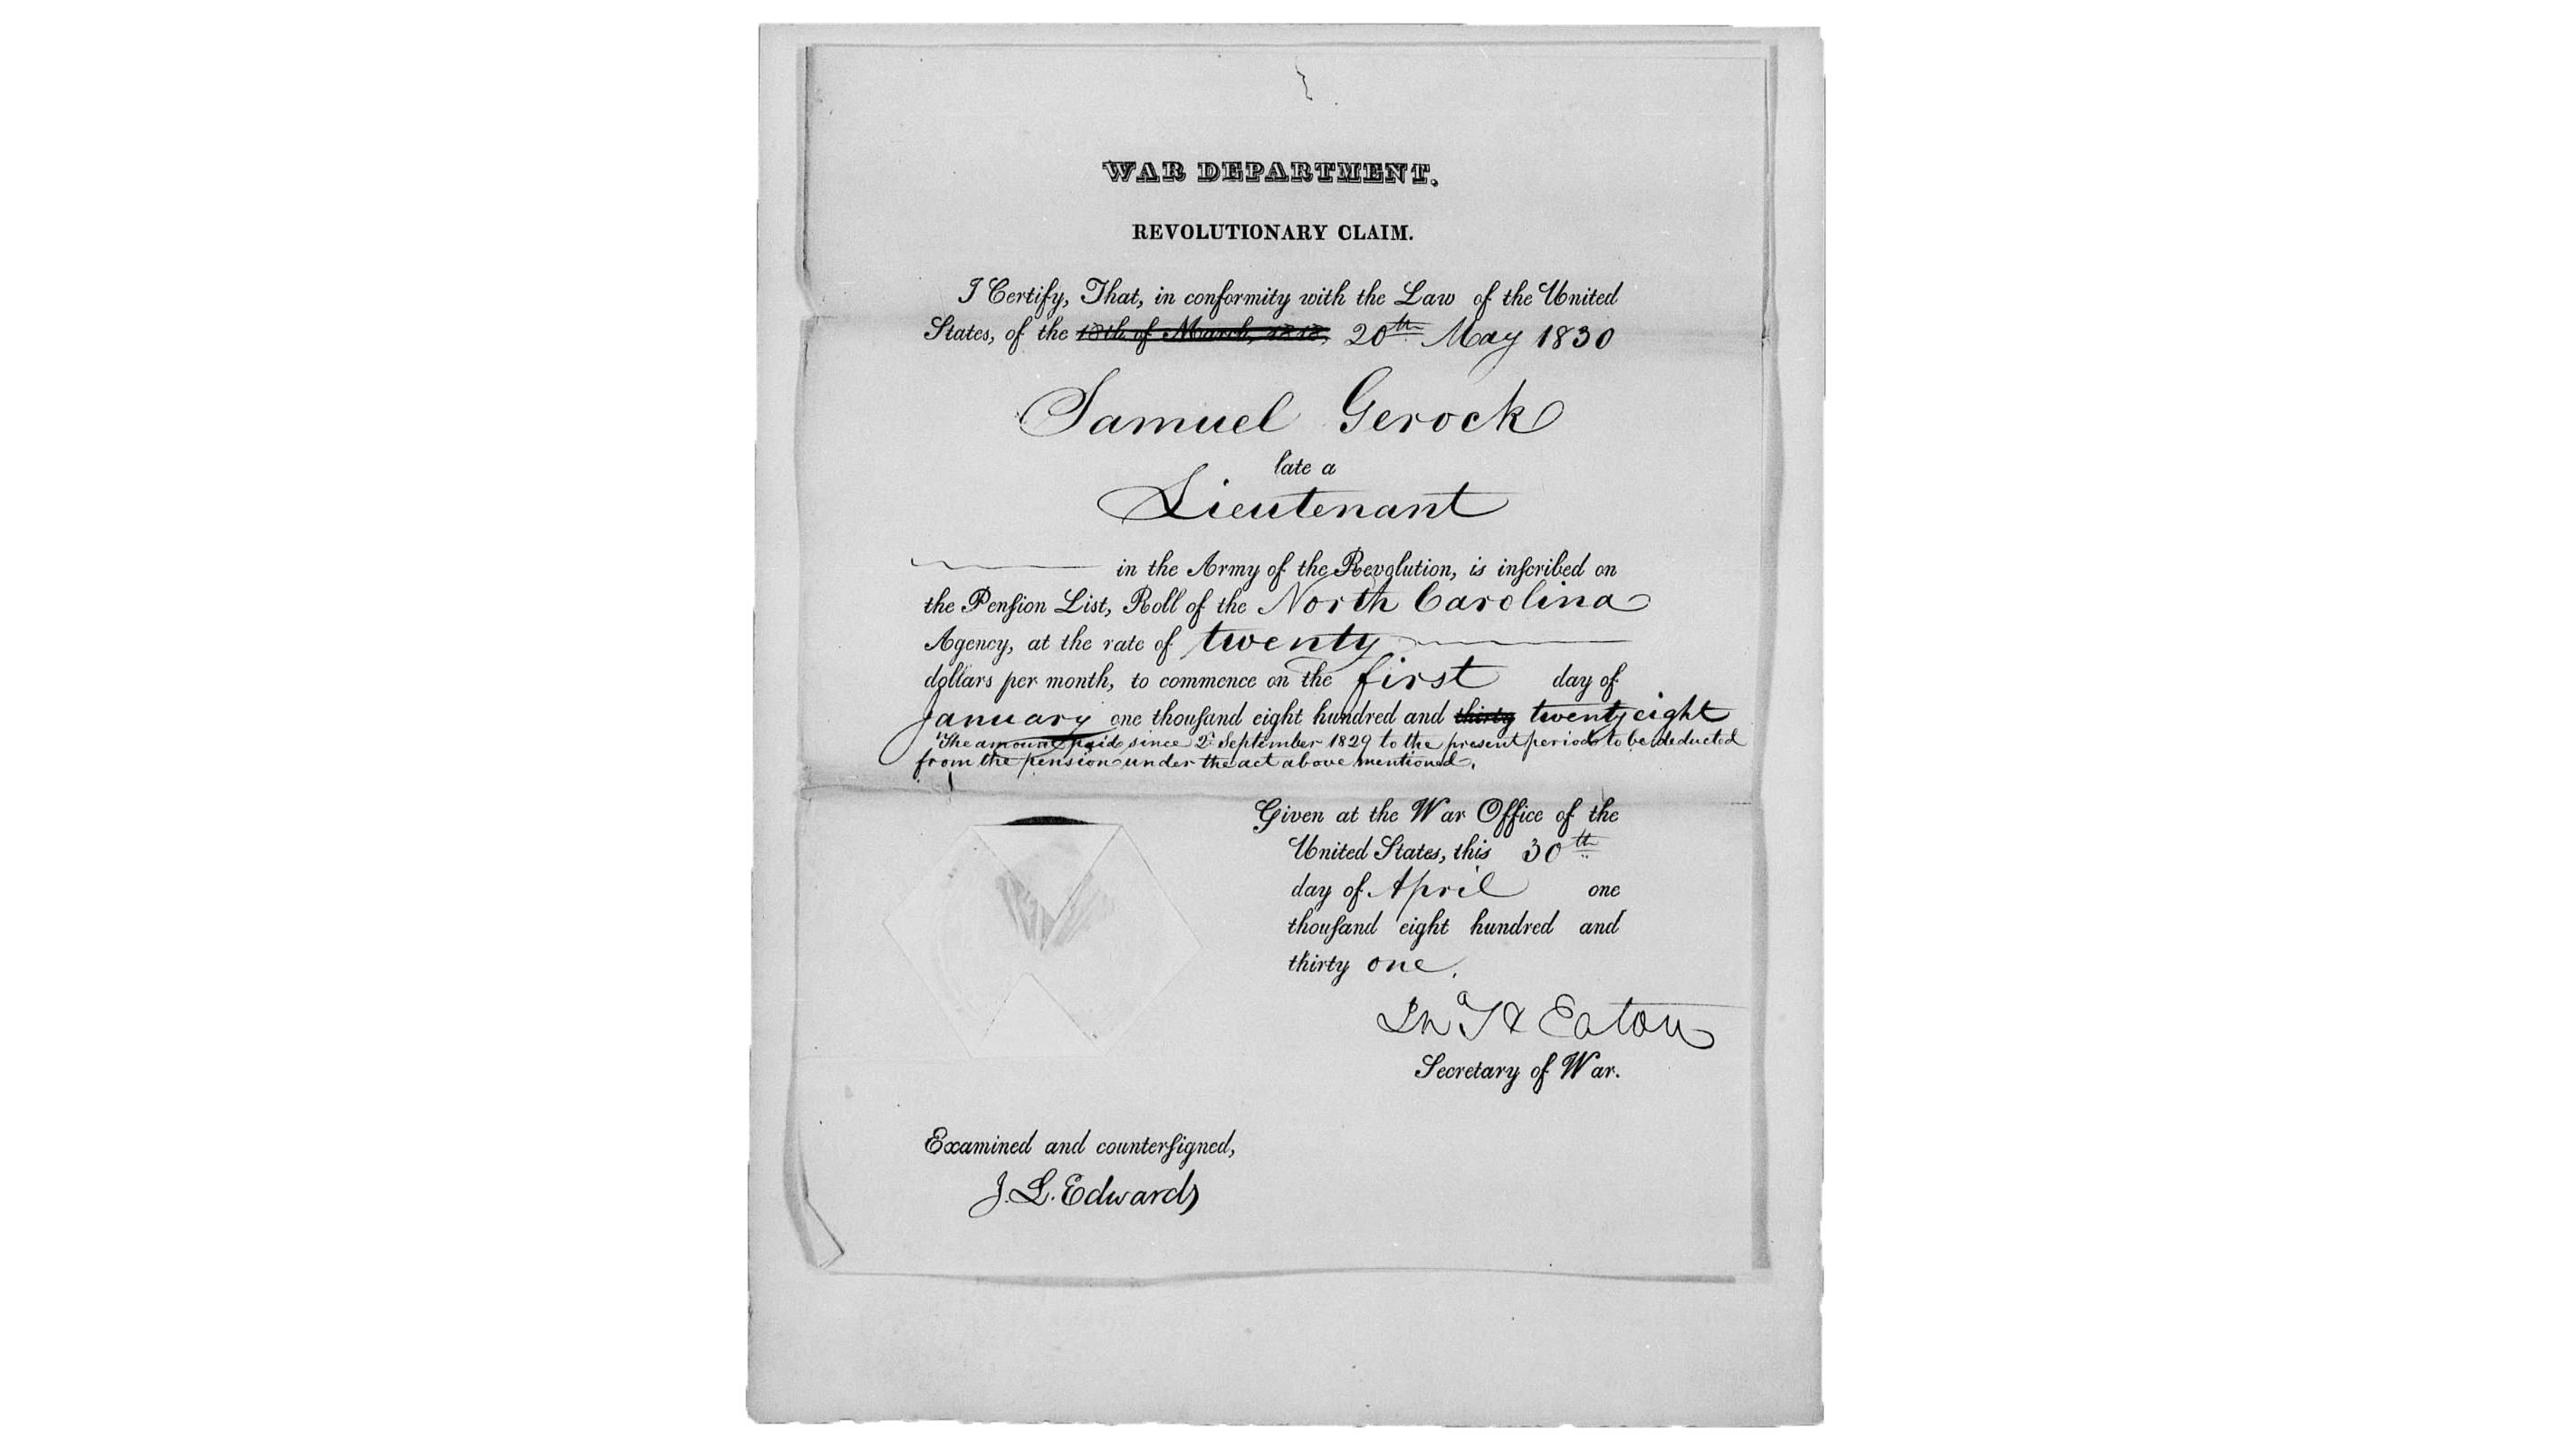 WAR DEPARTMENT.
REVOLUTIONARY CLAIM.
I Certify, That, in conformity with the Law of the United
States, of the 18th of March, 1818, 20th May 1830
Samuel Gerock
late a
Lieutenant
in the Army of the Revolution, is inſcribed on
the Penſion List, Roll of the North Carolina
Agency, at the rate of twenty
dollars per month, to commence on the first day of
January one thouſand eight hundred and thirty twenty eight
The amount paid since 2d September 1829 to the present period to be deducted
from the pension under the act above mentioned.
Given at the War Office of the
United States, this 30th
day of April one
thouſand eight hundred and
thirty one.
Jno H Eaton
Secretary of War.
Examined and counterſigned,
J. L. Edwards